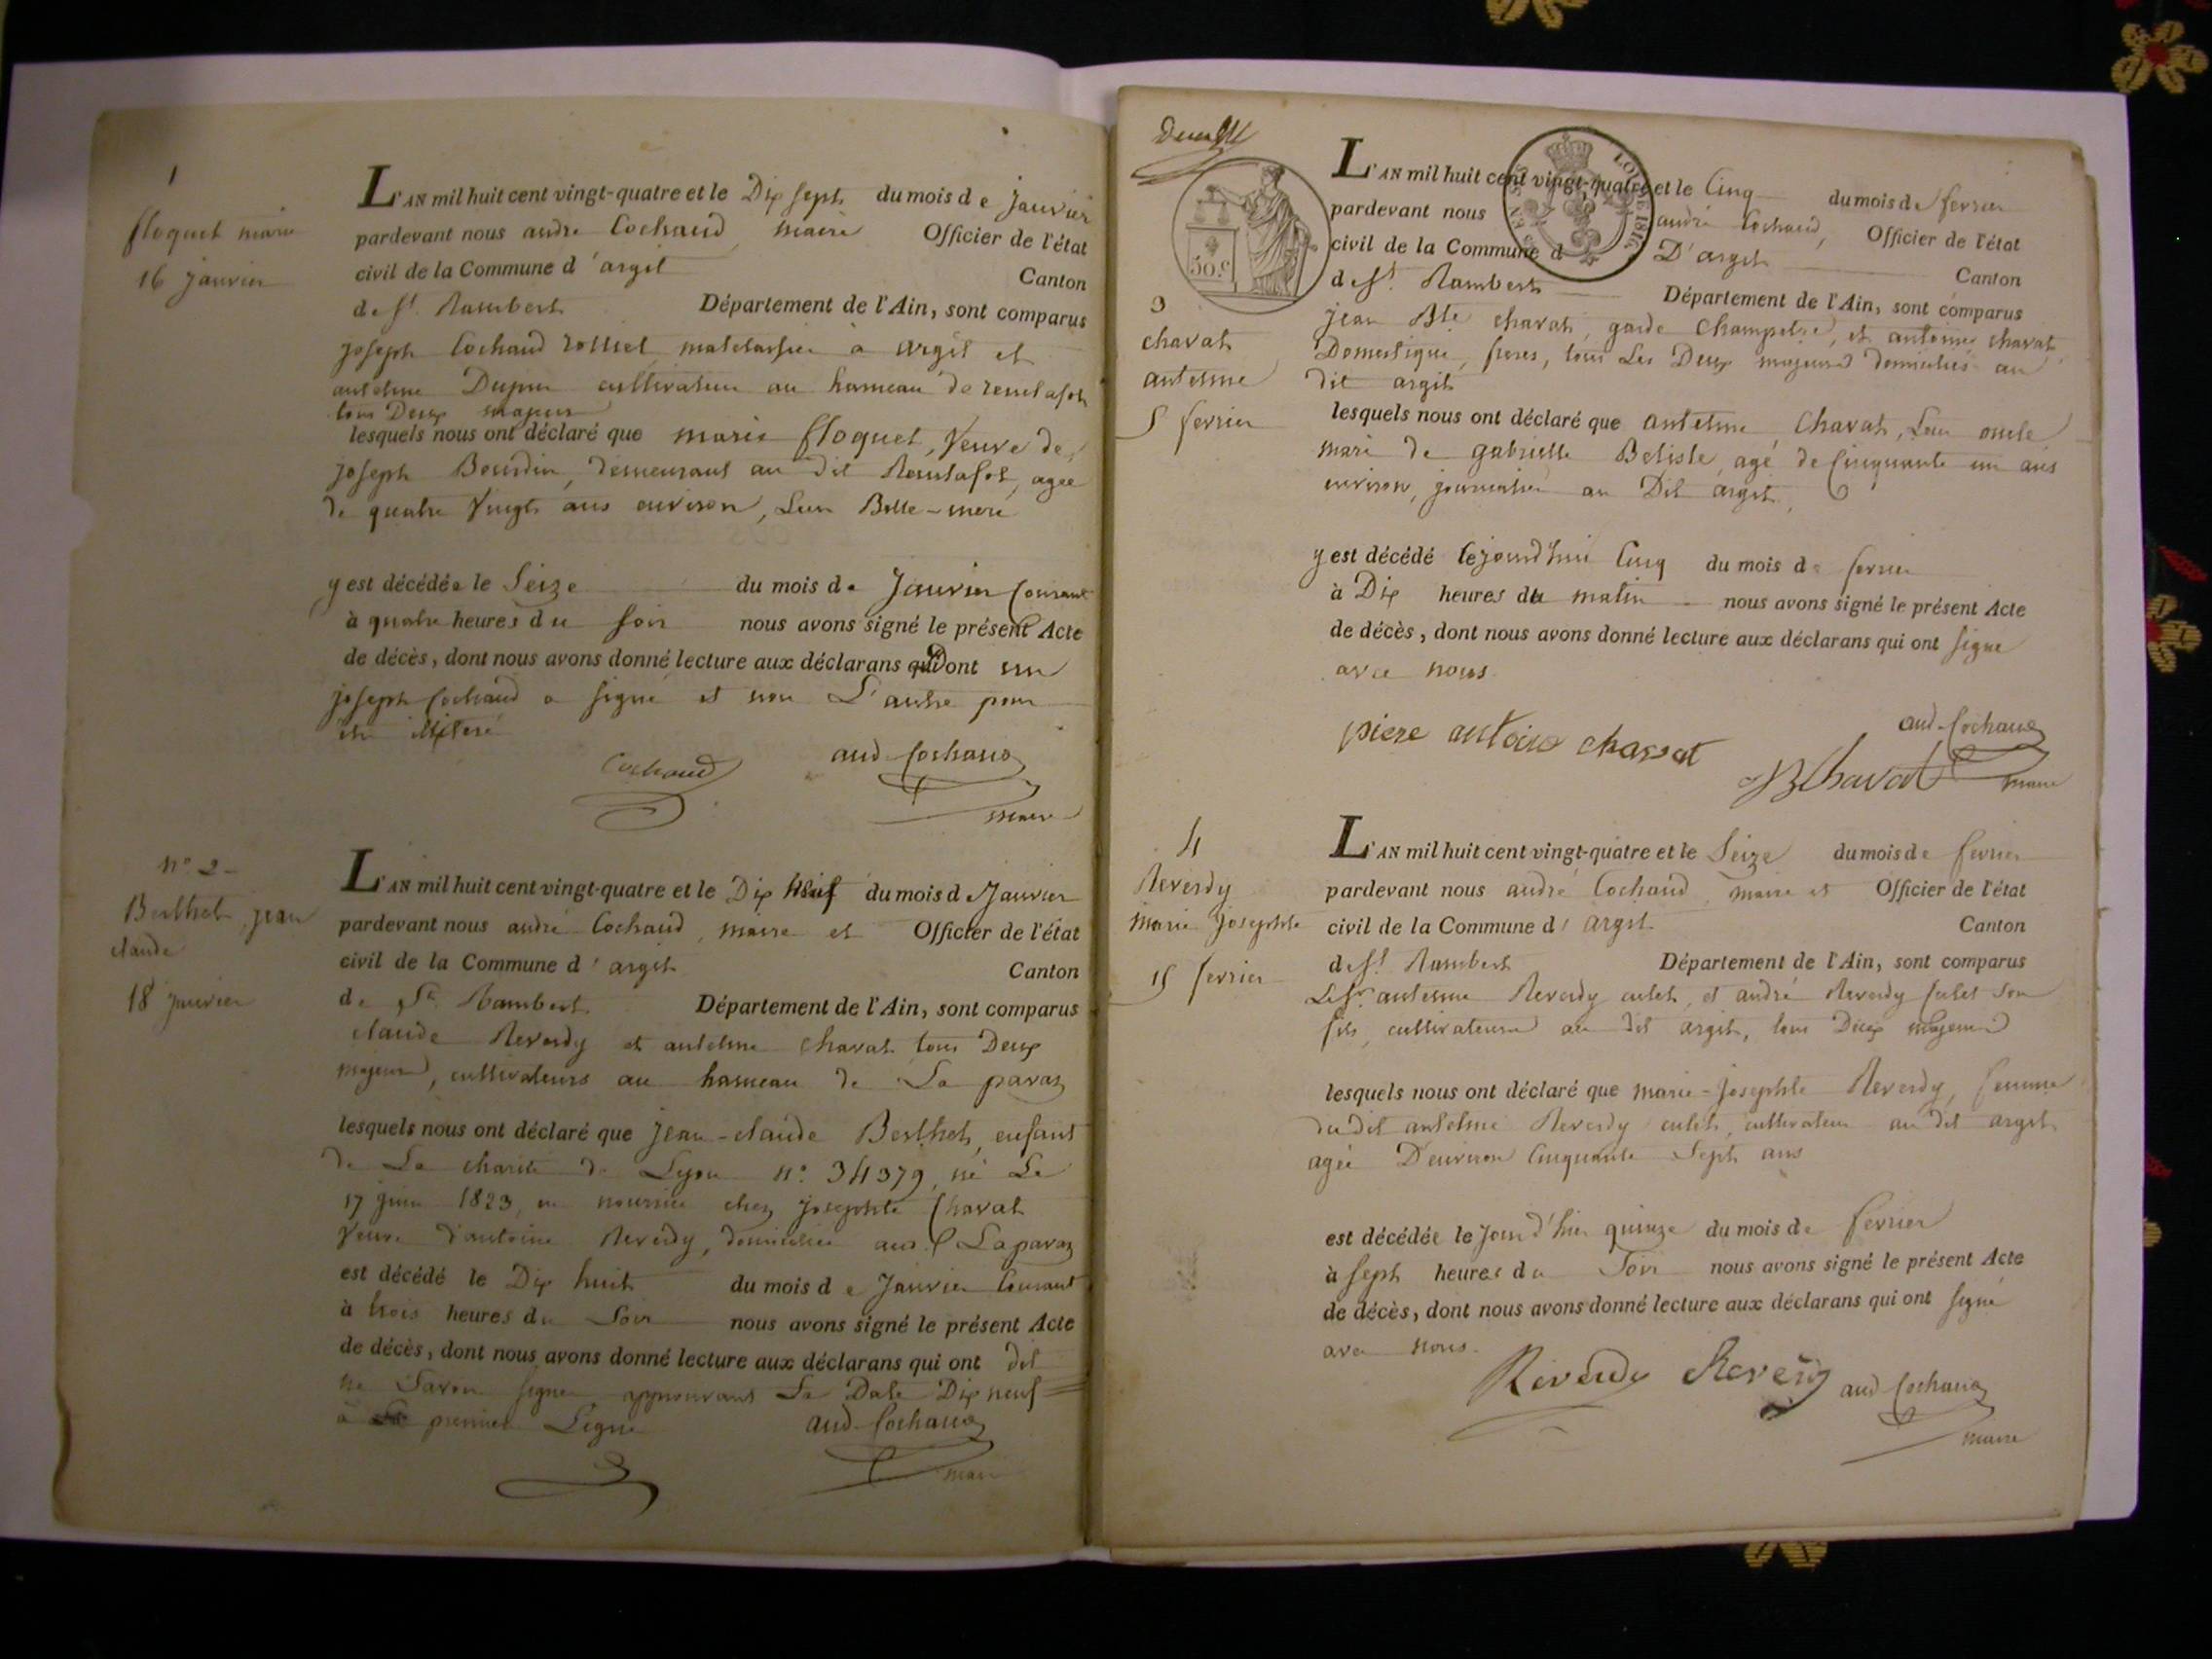 1
floquet marie
16 janvier
L'AN mil huit cent vingt-quatre et le Dix sept du mois de janvier
pardevant nous andré Cochaud, maire Officier de l'état
civil de la Commune d'argit Canton
de St. Rambert Département de l'Ain, sont comparus
joseph Cochaud matelassier à argit et
antelme Dupin cultivateur au hameau de
tous Deux majeurs
lesquels nous ont déclaré que marie floquet, veuve de
joseph Bourdin, demeurant au dit, agée
de quatre vingts ans environ, Leur Belle-mere
y est décédée le Seize du mois de Janvier Courant
à quatre heures du soir nous avons signé le présent Acte
de décès, dont nous avons donné lecture aux déclarans Dont un
joseph Cochaud a signé et non L'autre pour
être illiteré
Cochaud and Cochaud
maire
n° 2
Berthet, jean
claude
18 janvier
L'AN mil huit cent vingt-quatre et le Dix Neuf du mois de Janvier
pardevant nous andré Cochaud, maire et Officier de l'état
civil de la Commune d'argit Canton
de St. Rambert Département de l'Ain, sont comparus
claude Reverdy et antelme Chavat tous Deux
majeurs, cultivateurs au hameau de La paraz
lesquels nous ont déclaré que jean-claude Berthet, enfant
de La charité de Lyon n° 34379, né Le
17 juin 1823, en nourrice chez josephte Chavat
veuve d'antoine Reverdy, domiciliée Laparaz
est décédé le Dix huit du mois de Janvier Courant
à trois heures du Soir nous avons signé le présent Acte
de décès, dont nous avons donné lecture aux déclarans qui ont dit
ne Savoir signer approuvant La Date Dix neuf
à premiere Ligne and Cochaud
maire
50.c
LOI DE 1816
3
chavat
antelme
5 fevrier
L'AN mil huit cent vingt-quatre et le Cinq du mois de fevrier
pardevant nous andré Cochaud, Officier de l'état
civil de la Commune d D'argit Canton
de St. Rambert Département de l'Ain, sont comparus
jean Bte chavat, garde Champetre, et antoine chavat
Domestique, freres, tous Les Deux majeurs domiciliés au
dit argit
lesquels nous ont déclaré que antelme Chavat, Leur oncle
mari de gabrielle Belisle, agé de Cinquante un ans
environ, journalier au Dit argit,
y est décédé cejourd'hui Cinq du mois de fevrier
à Dix heures du matin nous avons signé le présent Acte
de décès, dont nous avons donné lecture aux déclarans qui ont signé
avec nous
piere antoine chavat and Cochaud
JB Chavat maire
4
Reverdy
marie josephte
15 fevrier
L'AN mil huit cent vingt-quatre et le Seize du mois de fevrier
pardevant nous andré Cochaud, maire et Officier de l'état
civil de la Commune d'argit Canton
de St. Rambert Département de l'Ain, sont comparus
Le Sr antelme Reverdy culet, et andré Reverdy Culet Son
fils, cultivateurs au dit argit, tous Deux majeurs
lesquels nous ont déclaré que marie-josephte Reverdy, femme
du dit antelme Reverdy culet, cultivateur au dit argit
agée D'environ Cinquante Sept ans
est décédée le jour d'hier quinze du mois de fevrier
à Sept heures du Soir nous avons signé le présent Acte
de décès, dont nous avons donné lecture aux déclarans qui ont signé
avec nous.
Reverdy Reverdy and Cochaud
maire